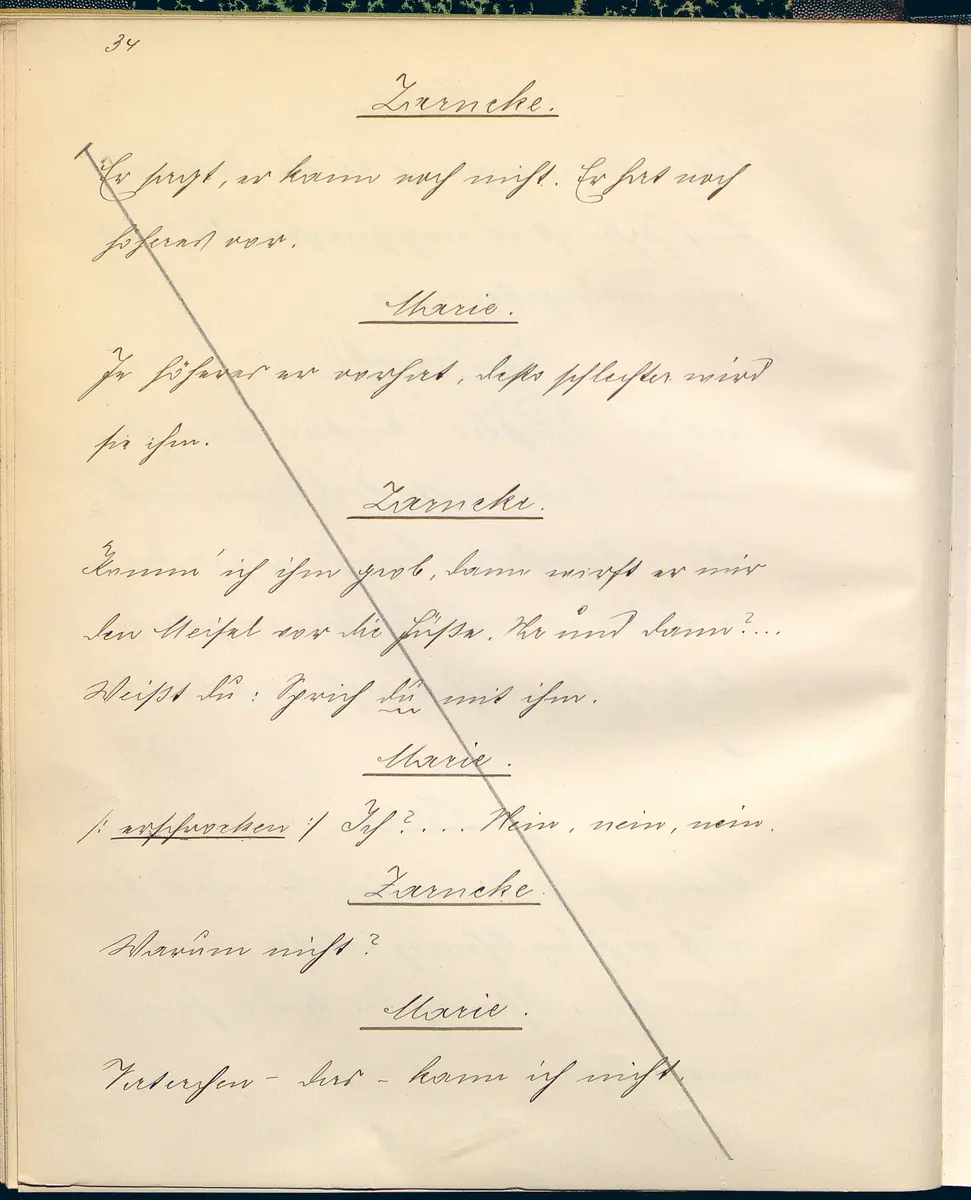 34
Zarncke.
Er sagt, er kann noch nicht. Er hat noch
höheres vor.
Marie.
Je höheres er vorhat, desto schlechter wird
sie ihm.
Zarncke.
Komm' ich ihm grob, dann wirft er mir
den Meißel vor die Füße. Na und dann?...
Weißt du: Sprich du mit ihm.
Marie.
/: erschrocken :/ Ich?... Nein, nein, nein.
Zarncke.
Warum nicht?
Marie.
Vaterchen – das – kann ich nicht.